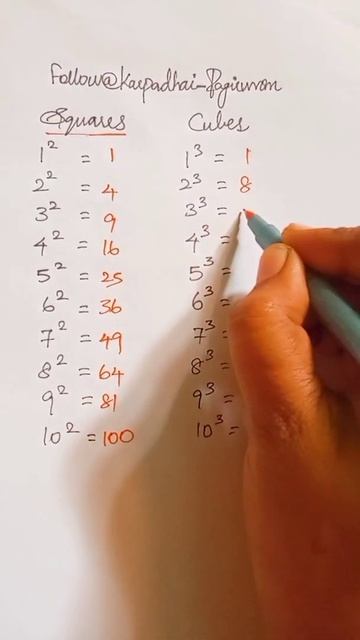 Follow@karpadhai_Pagirvom
Squares
1² = 1
2² = 4
3² = 9
4² = 16
5² = 25
6² = 36
7² = 49
8² = 64
9² = 81
10² = 100
Cubes
1³ = 1
2³ = 8
3³ =
4³ =
5³ =
6³ =
7³ =
8³ =
9³ =
10³ =